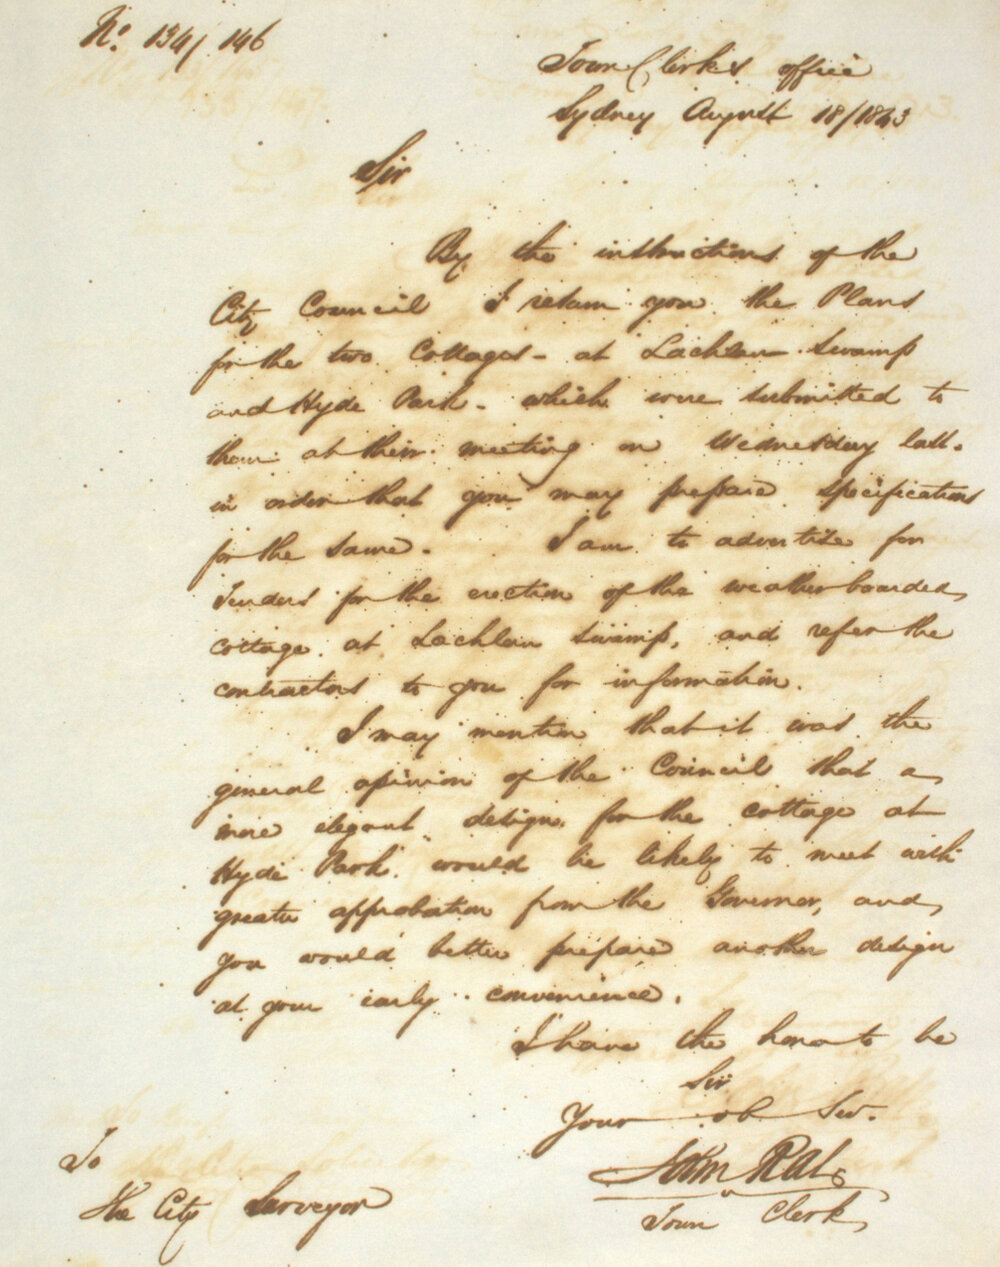 No. 134/146
Town Clerk's office
Sydney August 18/1843
Sir
By the instructions of the
City Council I return you the Plans
for the two Cottages - at Lachlan Swamp
and Hyde Park - which were submitted to
them at their meeting on Wednesday last.
in order that you may prepare specifications
for the same. I am to advertize for
Tenders for the erection of the weatherboarded
cottage at Lachlan Swamp, and refer the
contractors to you for information.
I may mention that it was the
general opinion of the Council that a
more elegant design for the cottage at
Hyde Park would be likely to meet with
greater approbation from the Governor, and
you would better prepare another design
at your early convenience.
I have the honor to be
Sir
Your ob Ser.
John Rae
Town Clerk
To
The City Serveyor